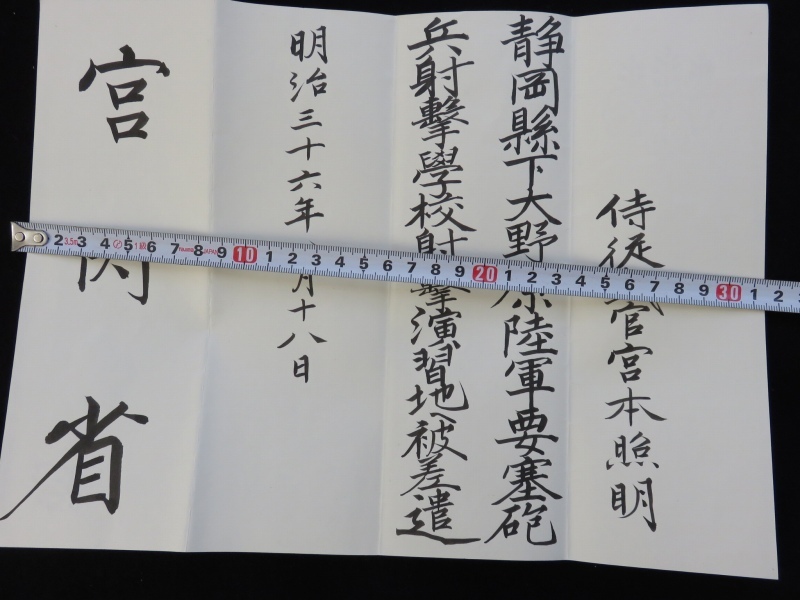 侍従武官宮本照明
静岡縣下大野原陸軍要塞砲
兵射擊學校射擊演習地へ被差遣
明治三十六年 月十八日
宮内省
2 3 4 5 6 7 8 9 10 1 2 3 4 5 6 7 8 9 20 1 2 3 4 5 6 7 8 9 30 1 2